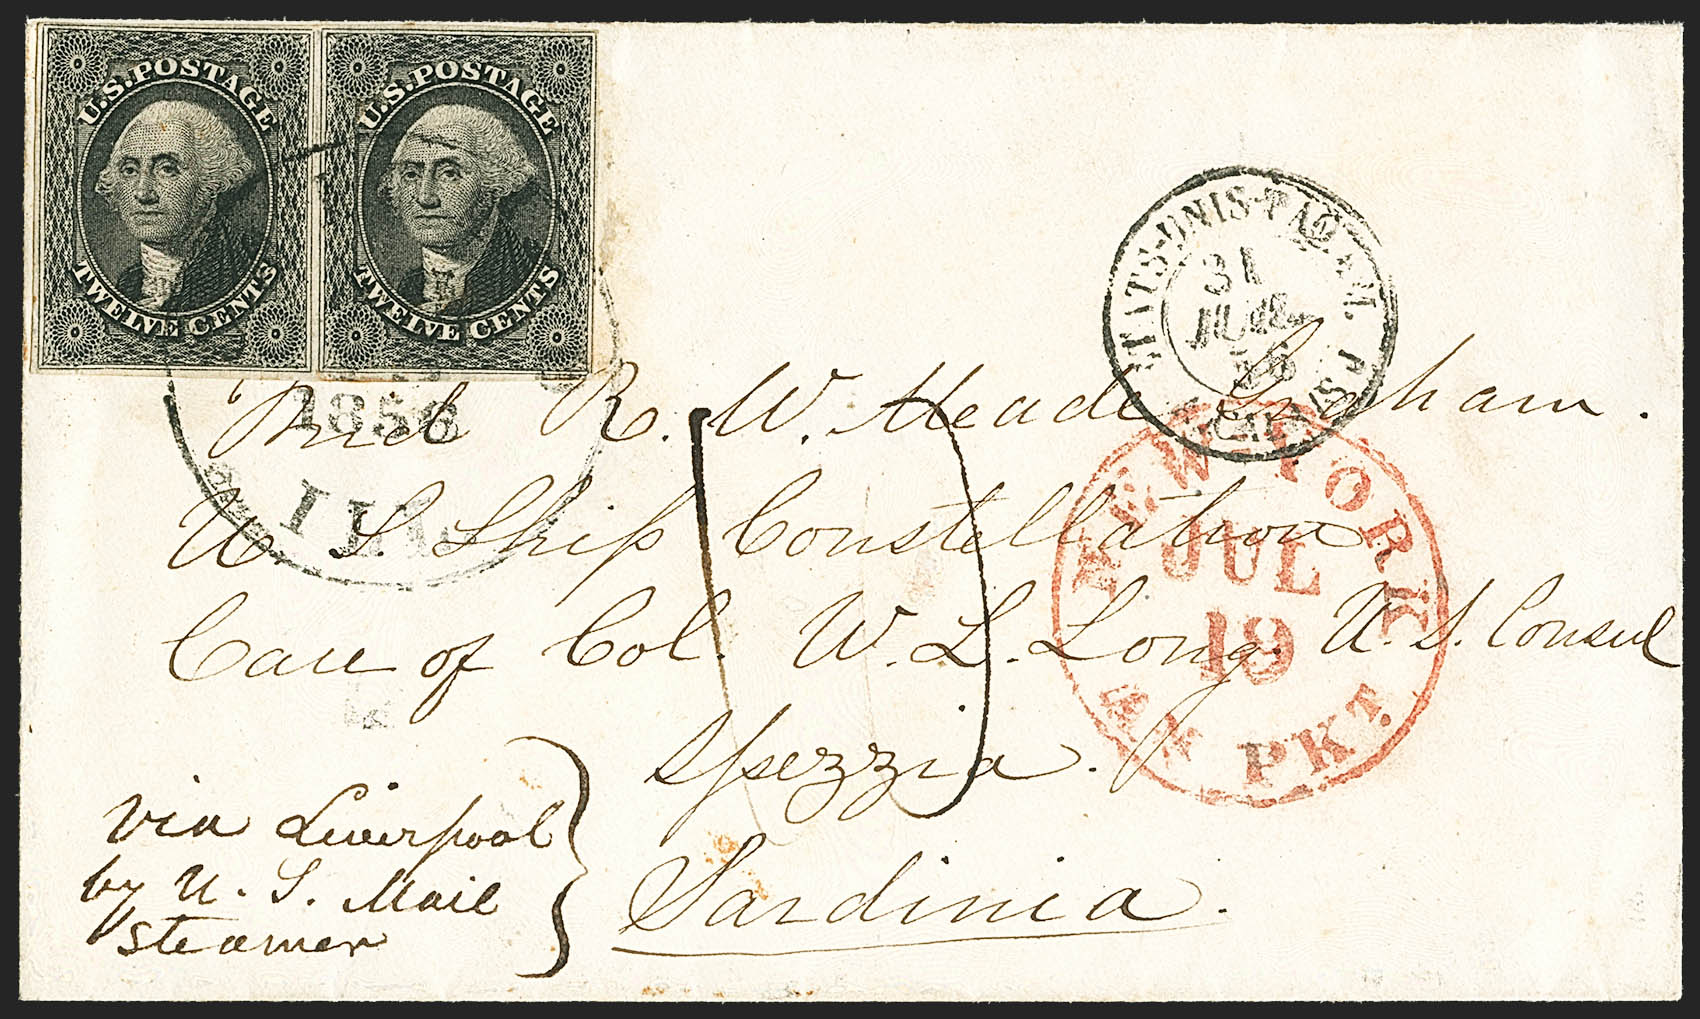 U.S. POSTAGE
TWELVE CENTS
U.S. POSTAGE
TWELVE CENTS
1856
ETATS-UNIS-PAQ. AM.
31
JUIL.
56
NEW-YORK
JUL
19
AM. PKT.
R. W. Meade Graham.
U. S. Ship Constellation
Care of Col. W. L. Long. U. S. Consul
Spezzia.
Sardinia.
via Liverpool
by U. S. Mail
steamer